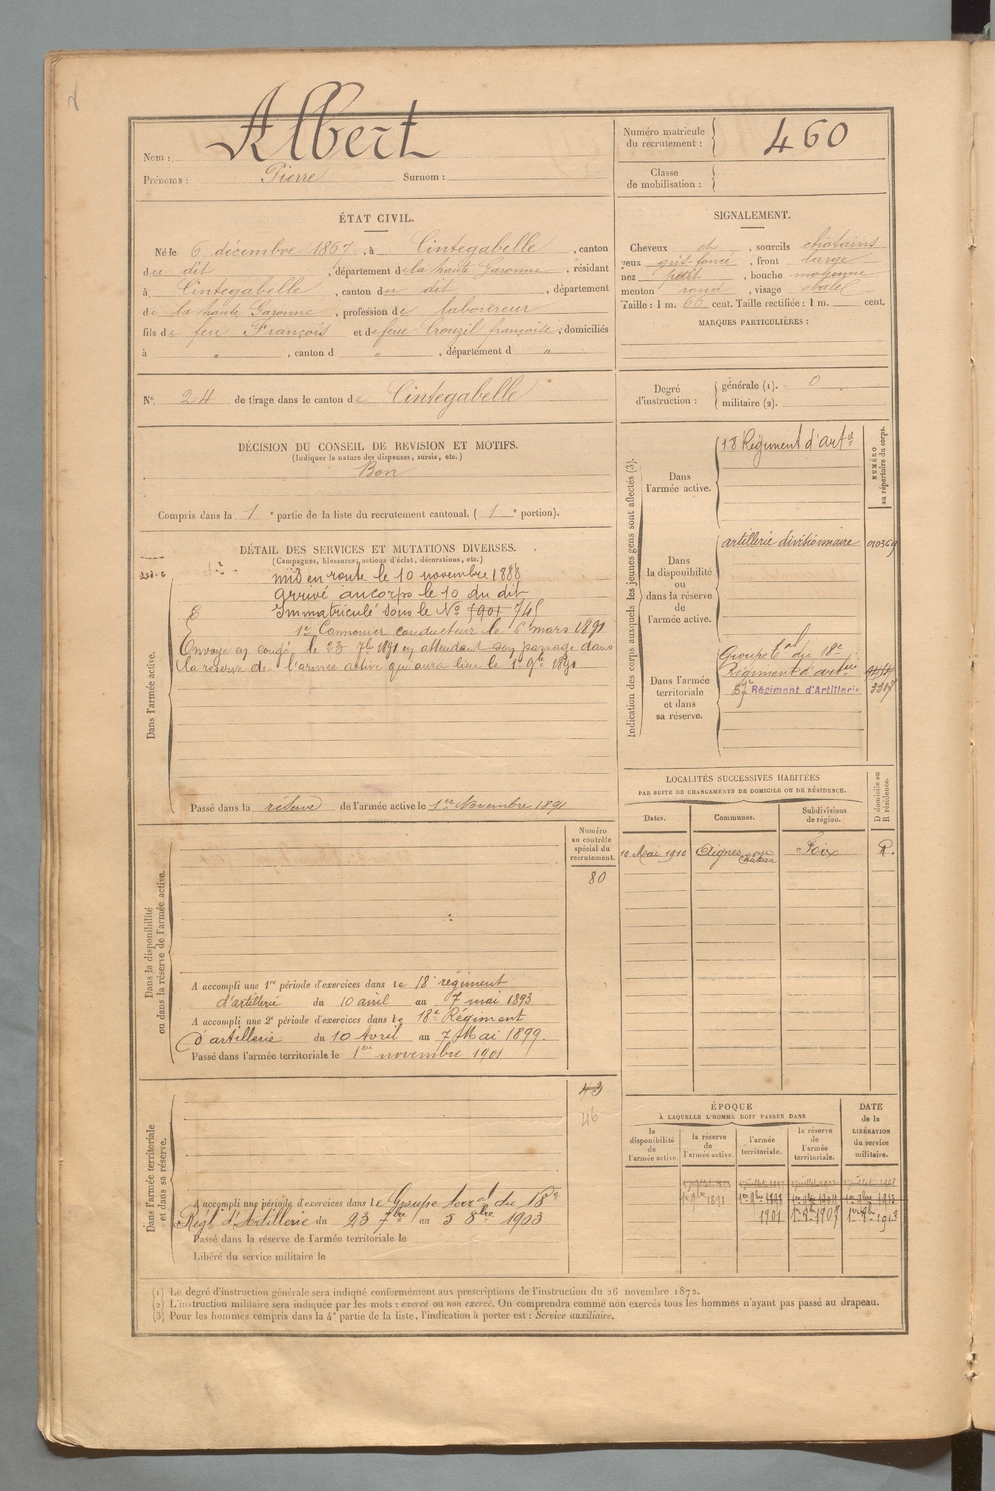 Nom : Albert
Prénoms : Pierre Surnom :
Numéro matricule du recrutement : 460
Classe de mobilisation :
ÉTAT CIVIL.
Né le 6 décembre 1867, à Cintegabelle, canton
du dit, département de la haute Garonne, résidant
à Cintegabelle, canton du dit, département
de la haute Garonne, profession de laboureur
fils de feu François et de feue Crouzil françoise, domiciliés
à " , canton d " , département d "
SIGNALEMENT.
Cheveux et , sourcils châtains
yeux gris foncé , front large
nez petit , bouche moyenne
menton rond , visage ovale
Taille : 1 m. 66 cent. Taille rectifiée : 1 m. cent.
MARQUES PARTICULIÈRES :
N° 24 de tirage dans le canton de Cintegabelle
Degré d'instruction : générale (1). 0
militaire (2).
DÉCISION DU CONSEIL DE REVISION ET MOTIFS.
(Indiquer la nature des dispenses, sursis, etc.)
Bon
Compris dans la 1e partie de la liste du recrutement cantonal. ( 1e portion).
Indication des corps auxquels les jeunes gens sont affectés (3).
NUMÉRO au répertoire du corps.
Dans l'armée active.
18 Régiment d'artie
Dans la disponibilité ou dans la réserve de l'armée active.
artillerie divisionnaire
Dans l'armée territoriale et dans sa réserve.
Groupe tal du 18e
Régiment d'artie
57e Régiment d'Artillerie
DÉTAIL DES SERVICES ET MUTATIONS DIVERSES.
(Campagnes, blessures, actions d'éclat, décorations, etc.)
Dans l'armée active.
mis en route le 10 novembre 1888
arrivé au corps le 10 du dit
Immatriculé sous le No 5901 745
1er Canonnier conducteur le 6 mars 1891
Envoyé en congé, le 23 7bre 1891 en attendant son passage dans
la réserve de l'armée active qui aura lieu le 1er 9bre 1891
Passé dans la réserve de l'armée active le 1er Novembre 1891
Numéro au contrôle spécial du recrutement.
80
Dans la disponibilité ou dans la réserve de l'armée active.
A accompli une 1re période d'exercices dans le 18e régiment
d'artillerie du 10 avril au 7 mai 1893
A accompli une 2e période d'exercices dans le 18e Régiment
d'artillerie du 10 Avril au 7 Mai 1899
Passé dans l'armée territoriale le 1er novembre 1901
43
46
Dans l'armée territoriale et dans sa réserve.
A accompli une période d'exercices dans le Groupe terral du 18e
Régt d'Artillerie du 23 7bre au 5 8bre 1903
Passé dans la réserve de l'armée territoriale le
Libéré du service militaire le
LOCALITÉS SUCCESSIVES HABITÉES
PAR SUITE DE CHANGEMENTS DE DOMICILE OU DE RÉSIDENCE.
Dates. Communes. Subdivisions de région. D domicile ou R résidence.
10 Mai 1910 Aignes Foix R.
ÉPOQUE
À LAQUELLE L'HOMME DOIT PASSER DANS
la disponibilité de l'armée active.
la réserve de l'armée active.
l'armée territoriale.
la réserve de l'armée territoriale.
DATE de la LIBÉRATION du service militaire.
1er 9bre 1891
1901 1er 9bre 1907 1er 9bre 1913
(1) Le degré d'instruction générale sera indiqué conformément aux prescriptions de l'instruction du 26 novembre 1872.
(2) L'instruction militaire sera indiquée par les mots : exercé ou non exercé. On comprendra comme non exercés tous les hommes n'ayant pas passé au drapeau.
(3) Pour les hommes compris dans la 4e partie de la liste, l'indication à porter est : Service auxiliaire.